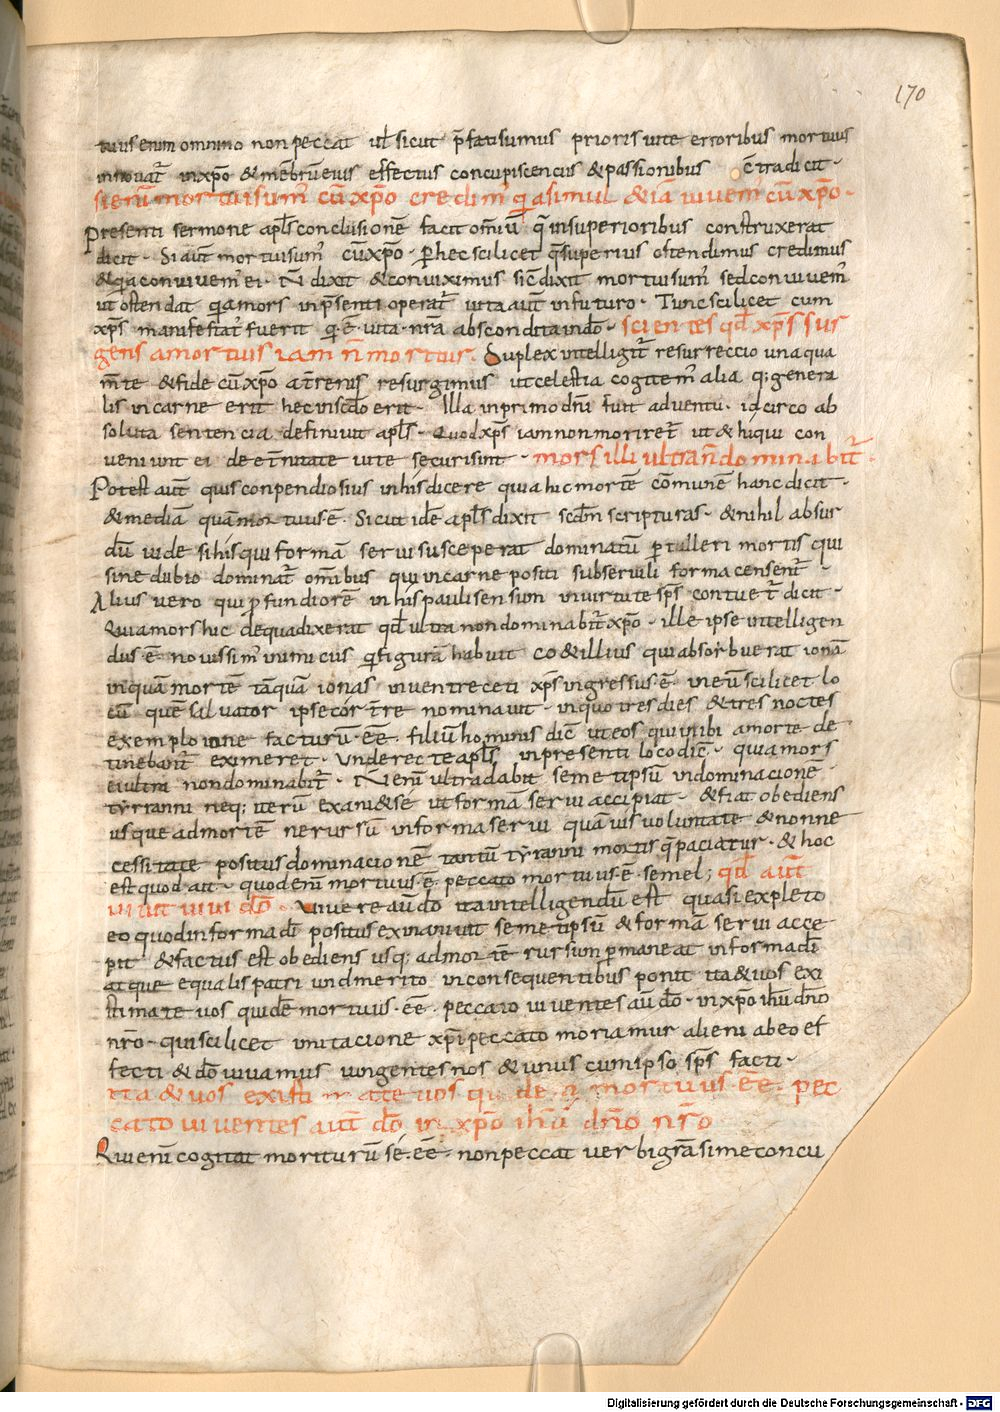 170
tuus enim omnino non peccat ul̄ sicut p̄fati sumus prioris uite erroribus mortuus
innouat᷑ in xp̄o & mēbrū eius effectus concupiscenciis & passionibus c̄tradicit ·
si enī mortui sum᷒ cū xp̄o credim᷒ q̄a simul & iā uiuem᷒ cū xp̄o ·
Presenti sermone apl̄s conclusionē facit om̄iū q̄ in superioribus construxerat
dicit · Si aut̄ mortui sum᷒ cū xp̄o · Per hec scilicet q̄ superius ostendimus credimus
& q̄a conuiuem᷒ ei · N̄ dixit & conuiximus sic̄ dixit mortui sum᷒ sed conuiuem᷒
ut ostendat q̄a mors in p̄senti operat᷑ uita aut̄ in futuro · Tunc scilicet cum
xp̄s manifestat᷒ fuerit q̄ · ē · uita · nr̄a abscondita in dō · scientes qd̄ xp̄s sur
gens a mortuis iam n̄ moritur · Duplex intelligit᷑ resurreccio una qua
m̄te & fide cū xp̄o a t̄renis resurgimus ut celestia cogitem᷒ alia q; genera
lis in carne erit hec in scd̄o erit · Illa in primo dn̄i fuit aduentu · idcirco ab
soluta sentencia definiuit apl̄s · Quod xp̄s iam non moriret᷑ ut & hi qui con
ueniunt ei de et̄nitate uite securi sint · mors illi ultra n̄ dominabit᷑ ·
Potest aut̄ quis conpendiosius in his dicere quia hic mortē cōmunē hanc dicit ·
& mediā quā mortuus · ē · Sicut idē apl̄s dixit scd̄m scripturas · & nihil absur
dū uide si his qui formā serui susceperat dominatū p tulleri mortis qui
sine dubio dominat᷑ om̄ibus qui in carne positi sub seruili forma censent᷑ ·
Alius uero qui p fundiorē in his pauli sensum in uirtute sp̄s contuet᷑ dicit ·
Quia mors hic de qua dixerat qd̄ ultra non dominabit᷑ xp̄o · ille ipse intelligen
dus · ē · nouissim᷒ inimicus q̄ figurā habuit coetillius qui absorbuerat ionā
in quā mortē tāquā ionas in uentre ceti xp̄s ingressus · ē · in eū scilicet lo
cū quē saluator ipse cor t̄re nominauit · in quo tres dies & tres noctes
exemplo ione facturū · ēē · filiū hominis dic̄ ut eos qui inibi a morte de
tinebant᷑ eximeret · Unde recte apl̄s in presenti loco dic̄ · quia mors
ei ultra non dominabit᷑ · N̄ enī ultra dabit semetipsū in dominacionē ·
tyranni neq; iterū exanietse ut formā serui accipiat · & fiat obediens
usque ad mortē ne rursū in forma serui quāuis uoluntate & non ne
cessitate positus dominacionē tantū tyranni mortis q̄ paciatur · & hoc
est quod ait · quod enī mortuus · ē · peccato mortuus · ē · semel ; qd̄ aut̄
uiuit uiuit dō · Uiuere aū dō ita intelligendū est quasi expleto
eo quod in forma dī positus exinaniuit semetipsū & formā serui acce
pit & factus est obediens usq; ad mortē rursum p maneat in forma dī
atque equalis patri und merito in consequentibus ponit ita & uos exi
stimate uos quidē mortuus · ēē · peccato uiuentes aū dō · in xp̄o ih̄u dn̄o
nr̄o · qui scilicet imitacione xp̄i peccato moriamur alieni ab eo ef
fecti & dō uiuamus iungentes nos & unus cum ipso sp̄s facti ·
ita & uos existimate uos quidē mortuus ēē · pec
cato uiuentes aut̄ dō in xp̄o ih̄ū dn̄o nr̄o
Qui enī cogitat moriturū sé · ēē · non peccat uerbi gr̄a si me concu
Digitalisierung gefördert durch die Deutsche Forschungsgemeinschaft - DFG